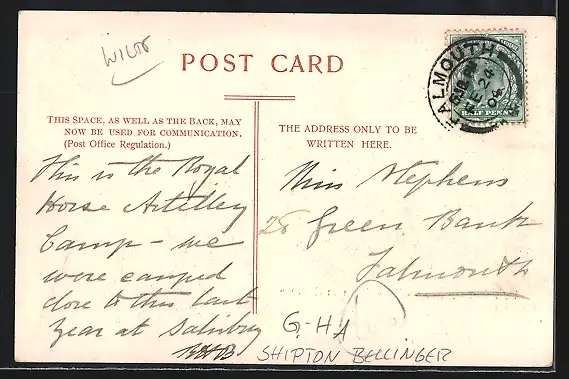 WILTS
POST CARD
THIS SPACE, AS WELL AS THE BACK, MAY
NOW BE USED FOR COMMUNICATION.
(Post Office Regulation.)
THE ADDRESS ONLY TO BE
WRITTEN HERE.
FALMOUTH
24
04
HALF PENNY
This is the Royal
Horse Artillery
Camp - we
were camped
close to this last
year at Salisbury
Miss Stephens
28 Green Bank
Falmouth
G-HA
SHIPTON BELLINGER